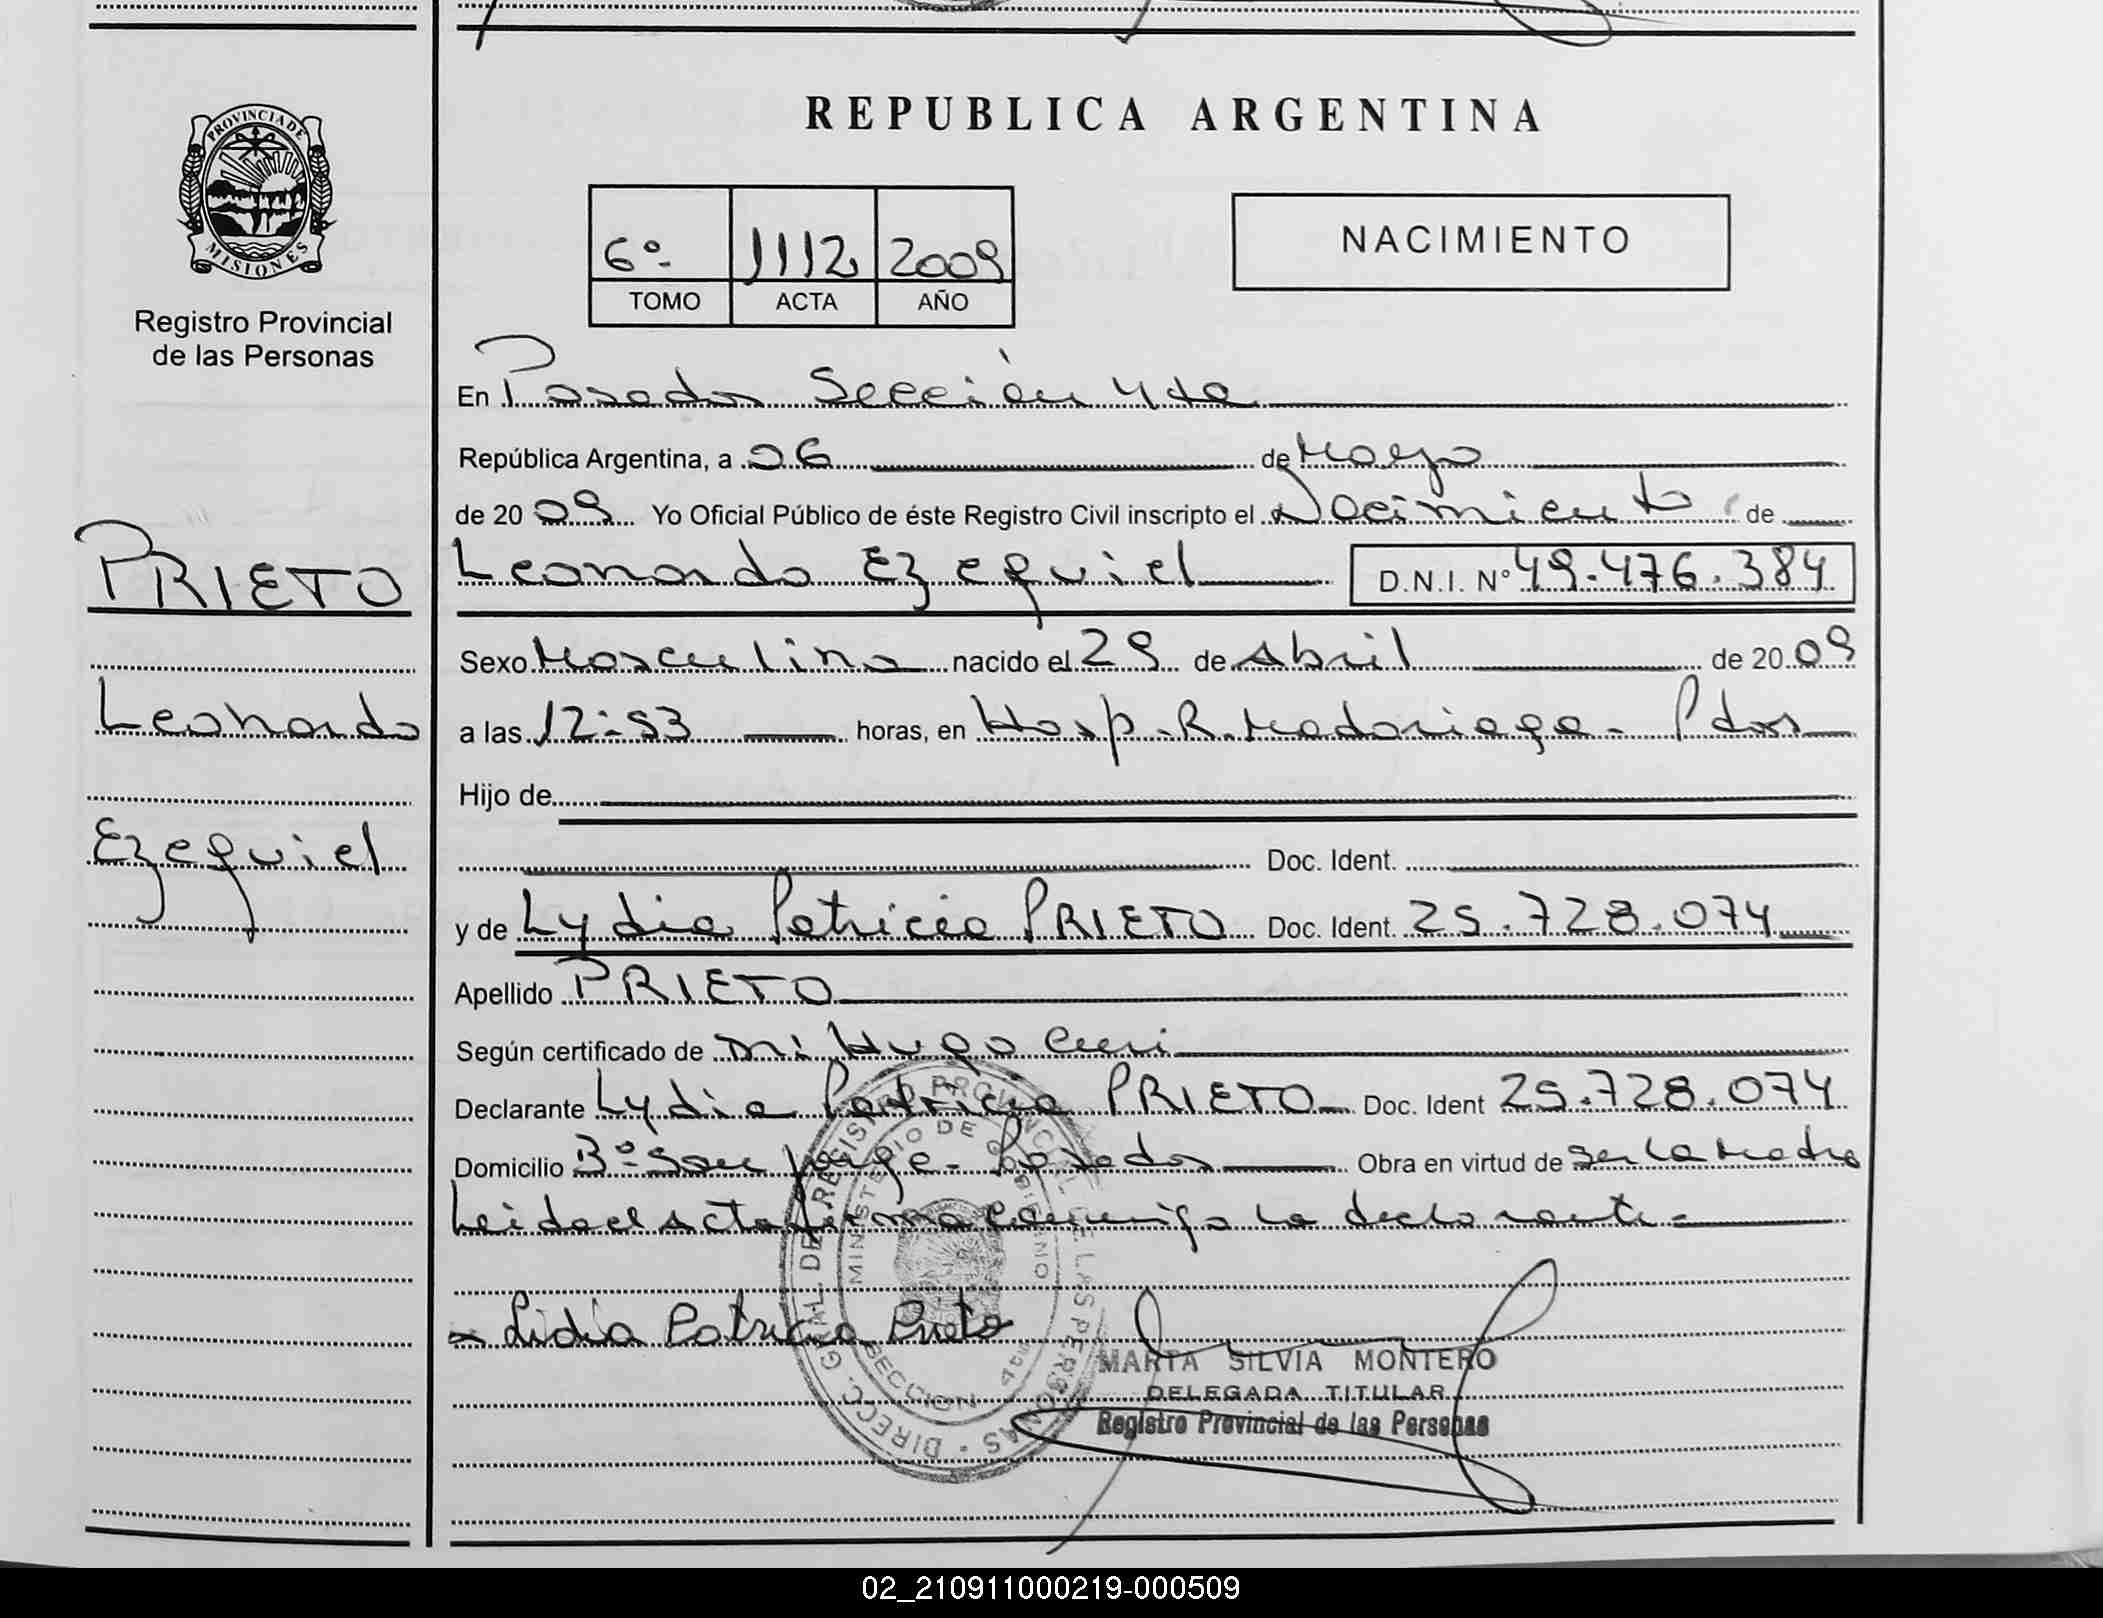 REPUBLICA ARGENTINA
PROVINCIA DE
MISIONES
Registro Provincial
de las Personas
6º 1112 2009
TOMO ACTA AÑO
NACIMIENTO
En Posadas Sección 4ta
República Argentina, a 06 de Mayo
de 2009 Yo Oficial Público de éste Registro Civil inscripto el Nacimiento de
PRIETO
Leonardo Ezequiel D.N.I. Nº 49.476.384
Sexo Masculino nacido el 29 de Abril de 2009
Leonardo
a las 12:53 horas, en Hosp. R. Madariaga - Pdas
Hijo de
Ezequiel
Doc. Ident.
y de Lydia Patricia PRIETO Doc. Ident. 25.728.074
Apellido PRIETO
Según certificado de Hugo
Declarante Lydia Patricia PRIETO Doc. Ident 25.728.074
Domicilio Bº San Jorge - Posadas Obra en virtud de ser la Madre
Leida el Acta firma conmigo la declarante -
- Lidia Patricia Prieto
DIRECC. GRAL. DEL REGISTRO PROVINCIAL DE LAS PERSONAS
MINISTERIO DE GOBIERNO
SECCION 4ta
MARTA SILVIA MONTERO
DELEGADA TITULAR
Registro Provincial de las Personas
02_210911000219-000509